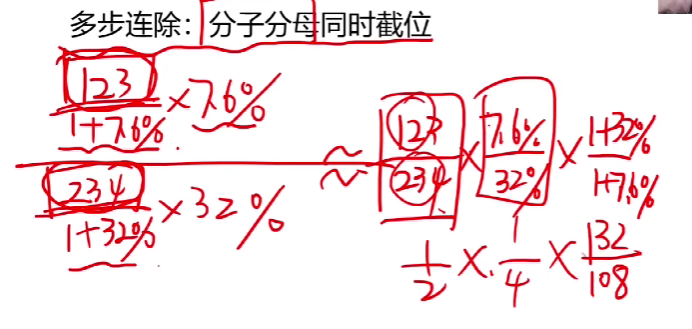 多步连除：分子分母同时截位
123/(1+7.6%) × 7.6%
234/(1+32%) × 32%
≈ 123/234 × 7.6%/32% × (1+32%)/(1+7.6%)
1/2 × 1/4 × 132/108